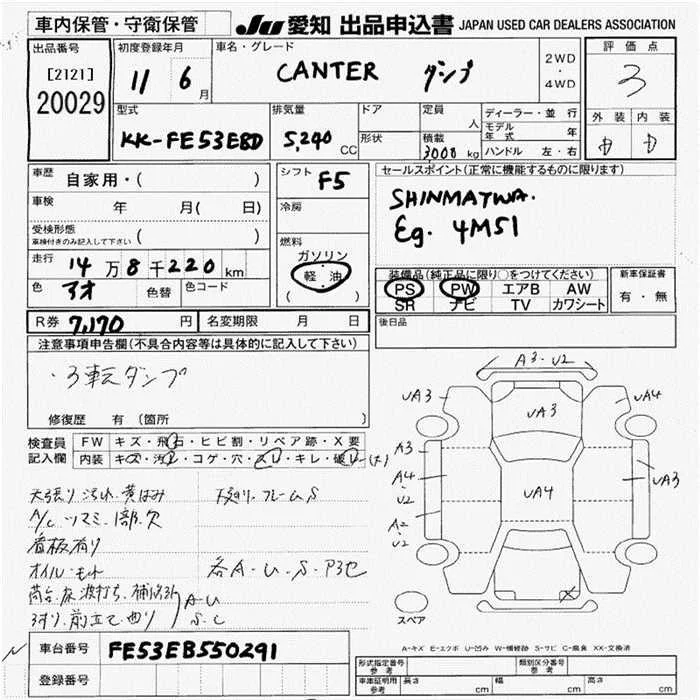 車内保管・守衛保管
JU 愛知 出品申込書 JAPAN USED CAR DEALERS ASSOCIATION
出品番号 [2121] 20029
初度登録年月 11 6月
車名・グレード CANTER ダンプ
2WD・4WD
評価点 3
外装 内装
型式 KK-FE53EBD
排気量 5,240 CC
ドア
形状
定員 人
積載 3,000 kg
ディーラー・並行
モデル年式 年
ハンドル 左・右
車歴 自家用・( )
車検 年 月( 日)
受検形態 車検付きのみ記入して下さい ( )
走行 14万8千220km
色 アオ 色替 色コード
シフト F5
冷房
燃料 ガソリン 軽油 ( )
セールスポイント(正常に機能するものに限ります)
SHINMAIWA.
Eg. 4M51
装備品(純正品に限り○をつけてください)
PS PW エアB AW
SR ナビ TV カワシート
新車保証書 有・無
R券 7,170円 名変期限 月 日
後日品
注意事項申告欄(不具合内容等は具体的に記入して下さい)
・3転ダンプ
修復歴 有(箇所 )
検査員記入欄
FW キズ・飛石・ヒビ割・リペア跡・X要
内装 キズ・汚れ・コゲ・穴・スレ・キレ・破レ(大)
天張り汚れ黄ばみ
下廻り.フレームS
A/C ツマミ1部欠
看板有り
オイル・もれ
各A・U・S・P3セ
荷台.床 波打ち、補修跡
ヨリ.前立て曲り
A.U
S.C
A3・U2
UA3
UA3
UA4
A3
A4
U2
A2
U2
UA4
UA3
X
スペア
A-キズ E-エクボ U-凹み W-補修跡 S-サビ C-腐食 XX-交換済
車台番号 FE53EB550291
登録番号
形式指定番号 参考
類別区分番号 参考
車庫証明用 参考 長さ cm 幅 cm 高さ cm